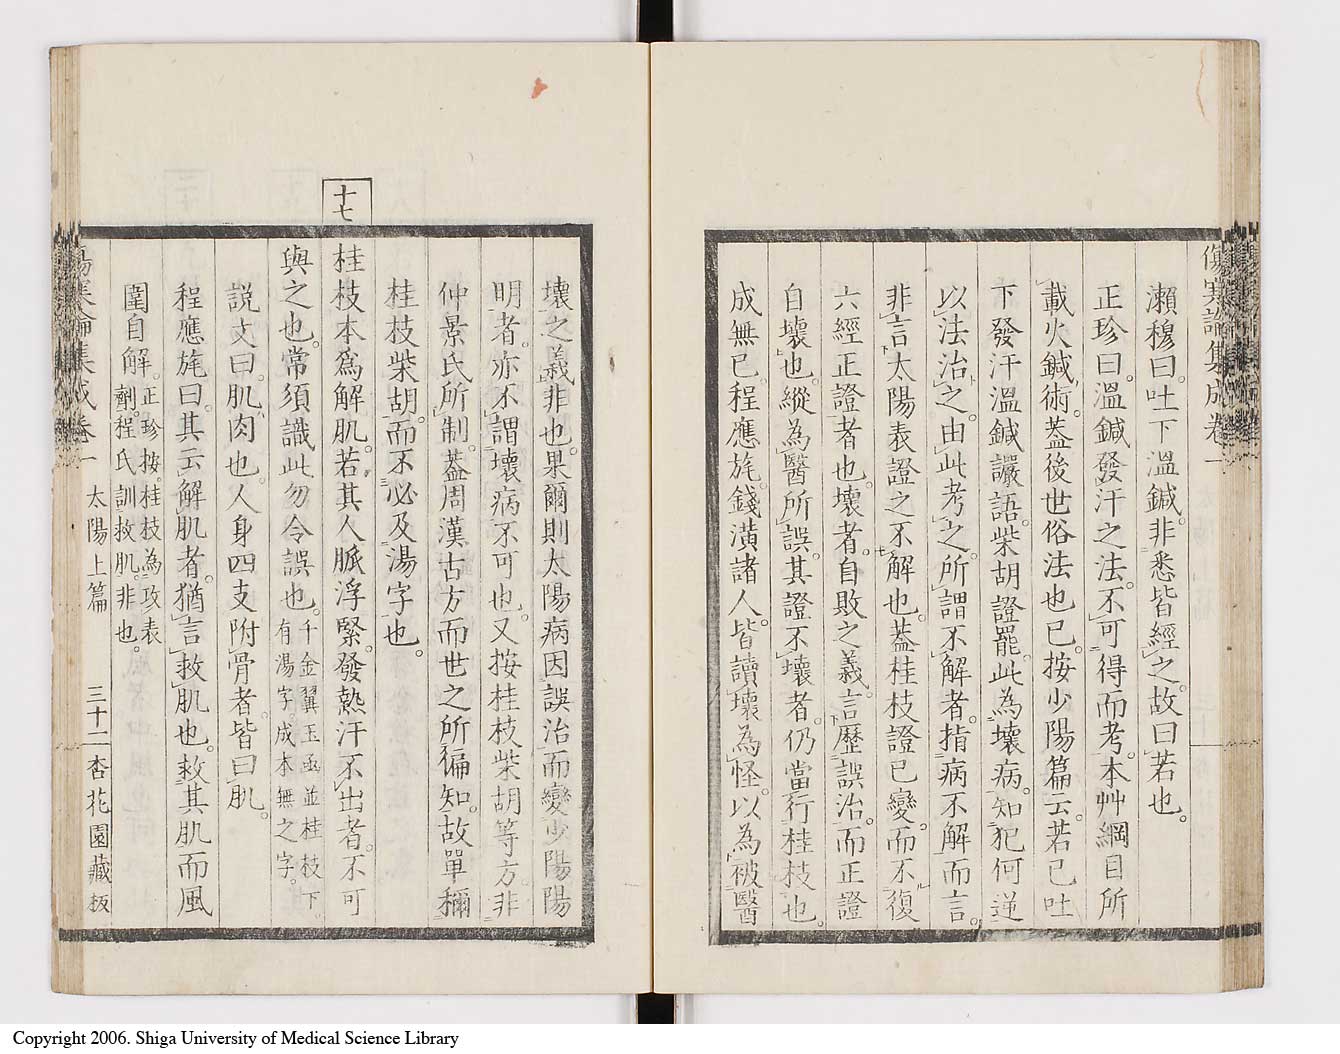 傷寒論集成卷一
瀨穆曰。吐下溫鍼。非悉皆經之。故曰若也。
正珍曰。溫鍼發汗之法。不可得而考。本艸綱目所
載火鍼術。蓋後世俗法也已。按少陽篇云。若已吐
下發汗溫鍼讝語。柴胡證罷。此為壞病。知犯何逆
以法治之。由此考之。所謂不解者。指病不解而言。
非言太陽表證之不解也。蓋桂枝證已變。而不復
六經正證者也。壞者。自敗之義。言歷誤治。而正證
自壞也。縱為醫所誤。其證不壞者。仍當行桂枝也。
成無已。程應旄。錢潢諸人。皆讀壞為怪。以為被醫
壞之義。非也。果爾則太陽病因誤治而變少陽陽
明者。亦不謂壞病不可也。又按桂枝柴胡等方。非
仲景氏所制。蓋周漢古方而世之所徧知。故單稱
桂枝柴胡。而不必及湯字也。
十七
桂枝本為解肌。若其人脈浮緊。發熱汗不出者。不可
與之也。常須識此勿令誤也。千金翼玉函並桂枝下。有湯字成本無之字。
說文曰。肌肉也。人身四支附骨者皆曰肌。
程應旄曰。其云解肌者。猶言救肌也。救其肌而風
圍自解。正珍按。桂枝為攻表劑。程氏訓救肌。非也。
傷寒論集成卷一 太陽上篇 三十二 杏花園藏板
Copyright 2006. Shiga University of Medical Science Library